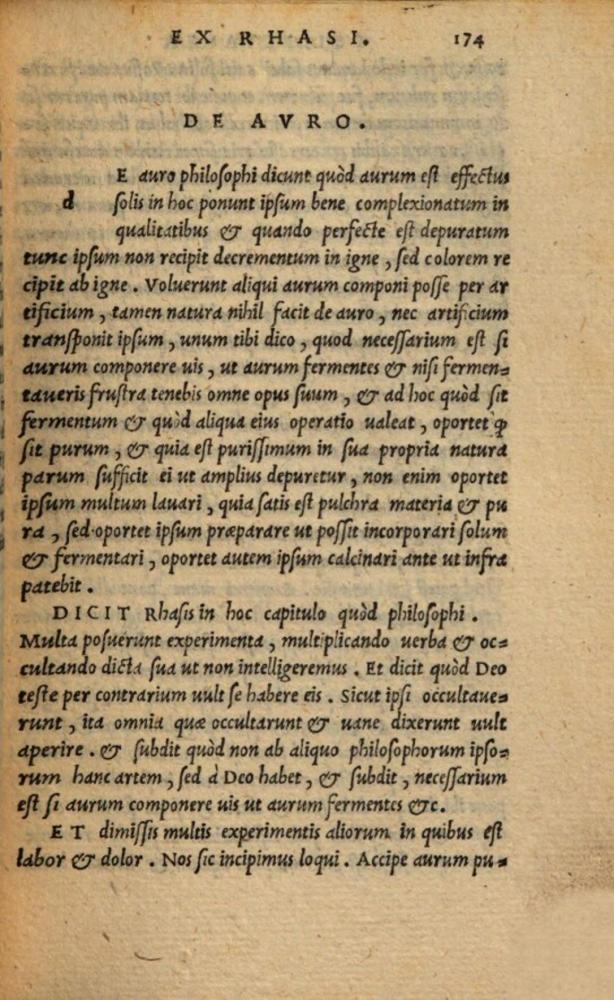 EX RHASI. 174
DE AVRO.
E auro philosophi dicunt quòd aurum est effectus
d solis in hoc ponunt ipsum bene complexionatum in
qualitatibus & quando perfecte est depuratum
tunc ipsum non recipit decrementum in igne, sed colorem re
cipit ab igne. Voluerunt aliqui aurum componi posse per ar
tificium, tamen natura nihil facit de auro, nec artificium
transponit ipsum, unum tibi dico, quod necessarium est si
aurum componere uis, ut aurum fermentes & nisi fermen=
taueris frustra tenebis omne opus suum, & ad hoc quòd sit
fermentum & quòd aliqua eius operatio ualeat, oportet ꝙ
sit purum, & quia est purissimum in sua propria natura
parum sufficit ei ut amplius depuretur, non enim oportet
ipsum multum lauari, quia satis est pulchra materia & pu
ra, sed oportet ipsum præparare ut possit incorporari solum
& fermentari, oportet autem ipsum calcinari ante ut infra
patebit.
DICIT Rhasis in hoc capitulo quòd philosophi.
Multa posuerunt experimenta, multiplicando uerba & oc=
cultando dicta sua ut non intelligeremus. Et dicit quòd Deo
teste per contrarium uult se habere eis. Sicut ipsi occultaue=
runt, ita omnia quæ occultarunt & uane dixerunt uult
aperire. & subdit quòd non ab aliquo philosophorum ipso=
rum hanc artem, sed à Deo habet, & subdit, necessarium
est si aurum componere uis ut aurum fermentes &c.
ET dimissis multis experimentis aliorum in quibus est
labor & dolor. Nos sic incipimus loqui. Accipe aurum pu=